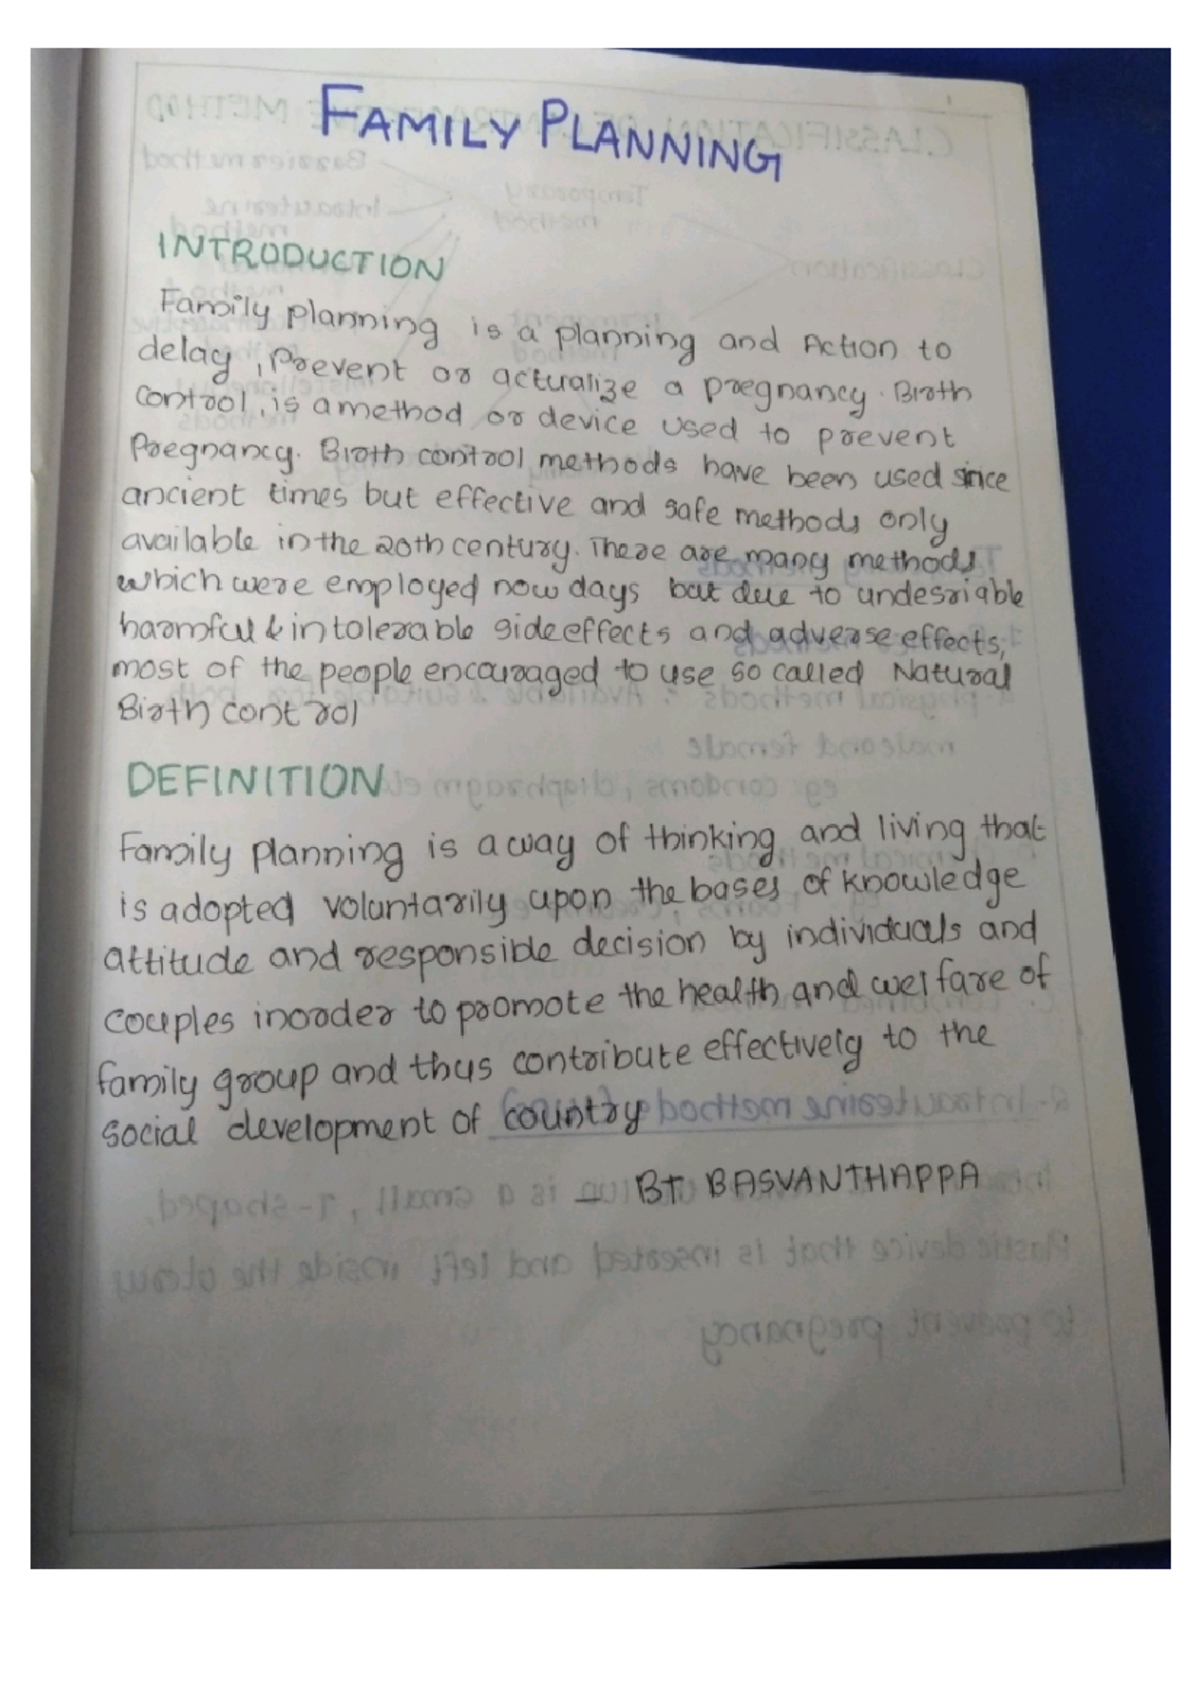 FAMILY PLANNING
INTRODUCTION
Family planning is a planning and Action to
delay, Prevent or actualize a pregnancy. Birth
Control, is a method or device used to prevent
Pregnancy. Birth control methods have been used since
ancient times but effective and safe methods only
available in the 20th century. There are many methods
which were employed now days but due to undesriable
harmful & intolerable side effects and adverse effects,
most of the people encouraged to use so called Natural
Birth control
DEFINITION
Family planning is a way of thinking and living that
is adopted voluntarily upon the bases of knowledge
attitude and responsible decision by individuals and
couples inorder to promote the health and welfare of
family group and thus contribute effectively to the
social development of country
— BT BASVANTHAPPA